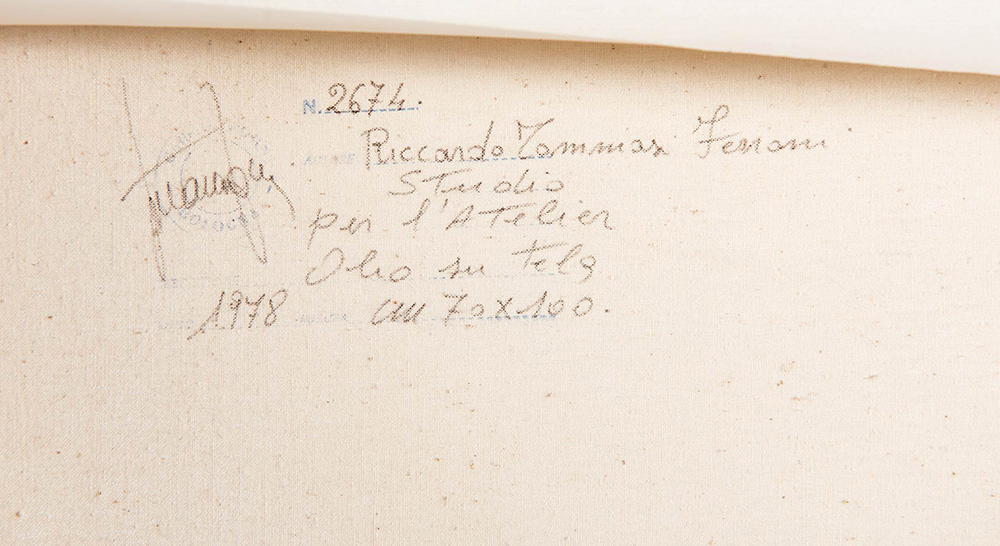 N. 2674.
Riccardo Tommasi Ferroni
Studio
per l'Atelier
Olio su tela
1978 cm 70x100.